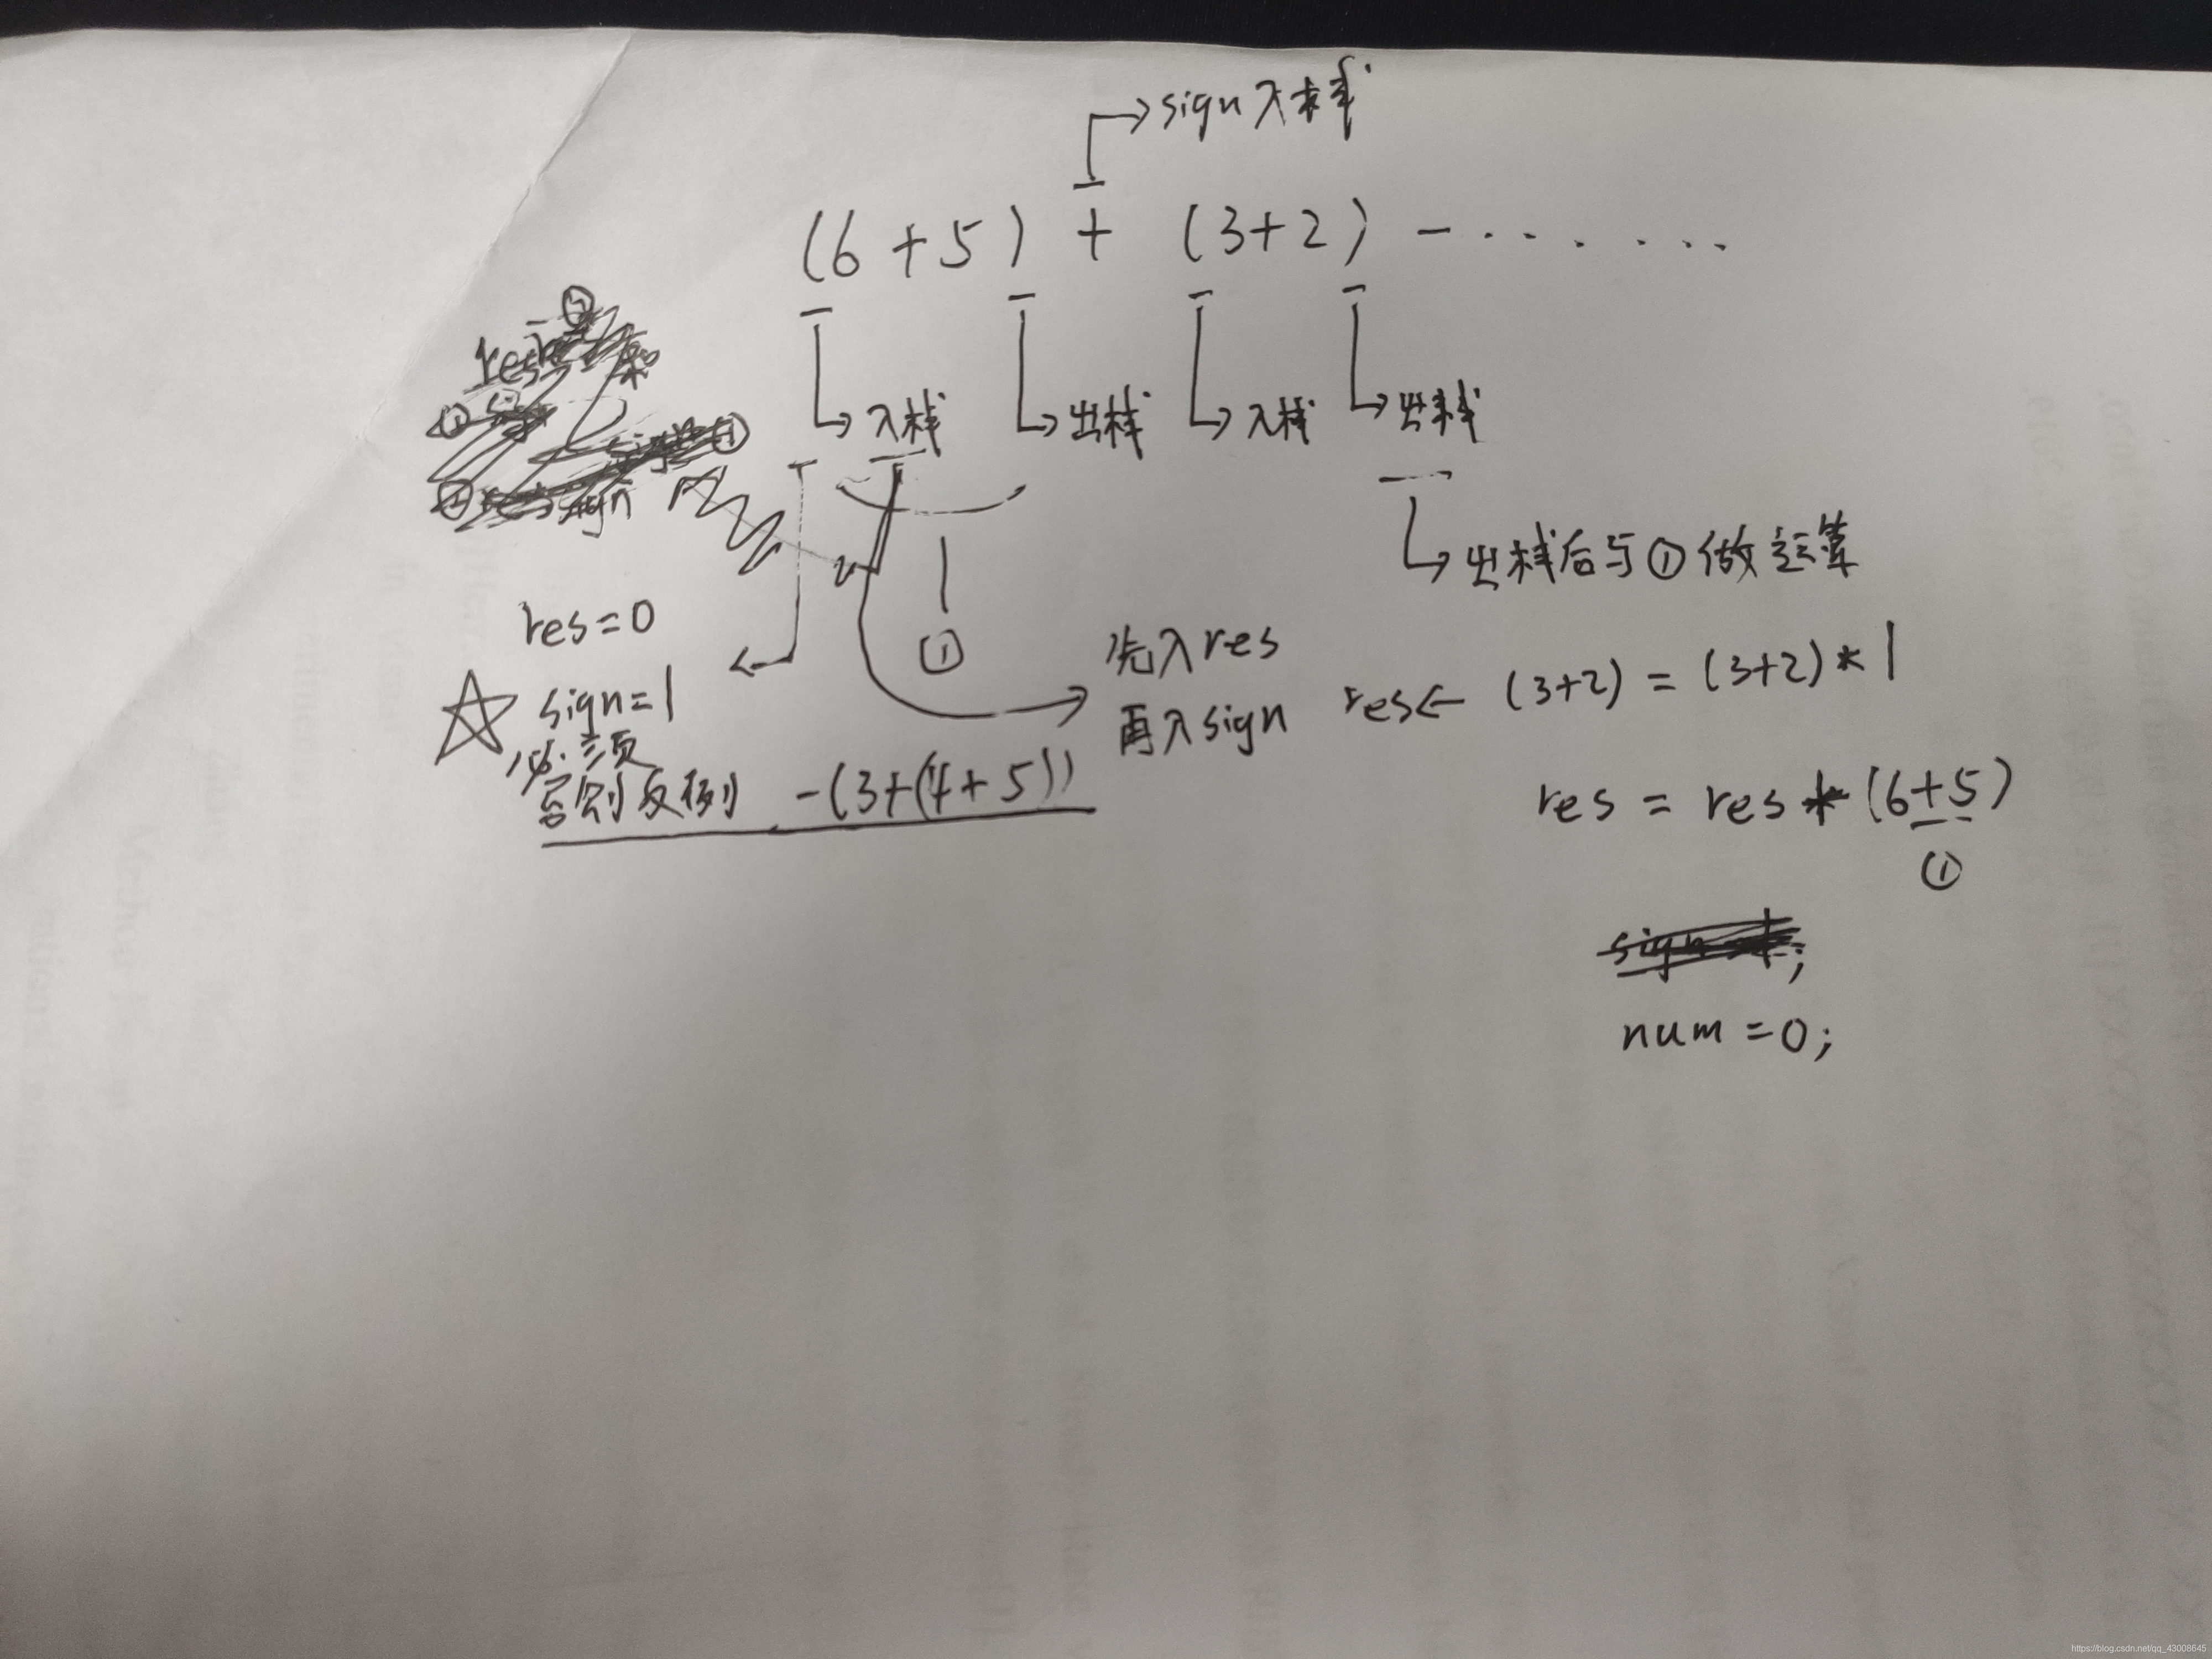 sign入栈
(6+5) + (3+2) - . . . . . . .
入栈
出栈
入栈
出栈
出栈后与①做运算
res=0
sign=1
必须
否则反例 -(3+(4+5))
①
先入res
再入sign
res← (3+2) = (3+2)*1
res = res + (6+5)
①
num=0;
https://blog.csdn.net/qq_43008645